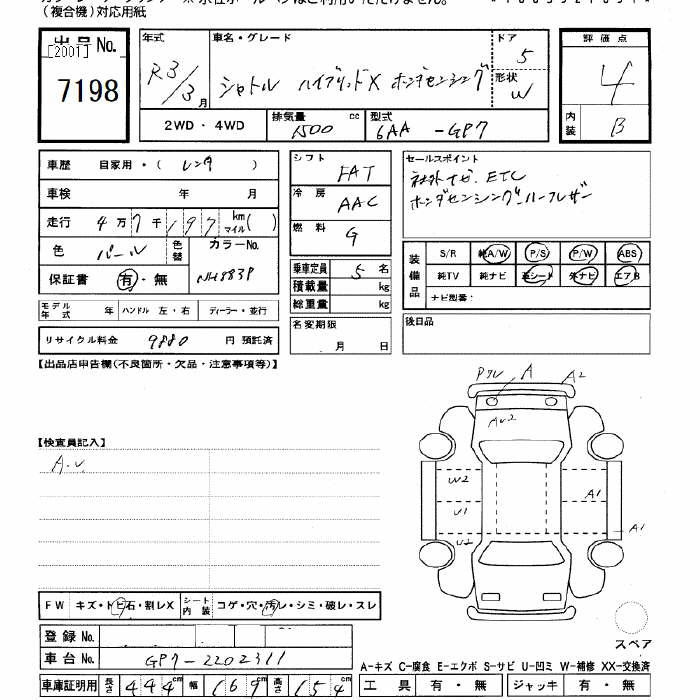 (複合機)対応用紙
出品No.
[2001]
7198
年式
R3/3月
車名・グレード
シャトル ハイブリッドX ホンダセンシング
ドア
5
形状
W
評価点
4
内装
B
2WD・4WD
排気量
1500 cc
型式
6AA -GP7
車歴 自家用・( レンタ )
車検 年 月
走行 4万7千197 km マイル( )
色 パール 色替 カラーNo.
NH883P
保証書 有・無
モデル年式 年 ハンドル 左・右 ディーラー・並行
リサイクル料金 9880 円 預託済
シフト FAT
冷房 AAC
燃料 G
乗車定員 5 名
積載量 kg
総重量 kg
名変期限
月 日
セールスポイント
社外ナビ. ETC
ホンダセンシング. ハーフレザー
装備品
S/R 純A/W P/S P/W ABS
純TV 純ナビ 革シート 外ナビ エアB
ナビ型番:
後日品
【出品店申告欄(不良箇所・欠品・注意事項等)】
【検査員記入】
A.U.
Pクレ A A2
AU2
W2
U1
U2
A1
A1
スペア
FW キズ・トビ石・割レX シート内装 コゲ・穴・汚レ・シミ・破レ・スレ
登録No.
車台No. GP7-2202311
A-キズ C-腐食 E-エクボ S-サビ U-凹ミ W-補修 XX-交換済
車庫証明用 長さ 444cm 幅 169cm 高さ 154cm
工具 有・無 ジャッキ 有・無